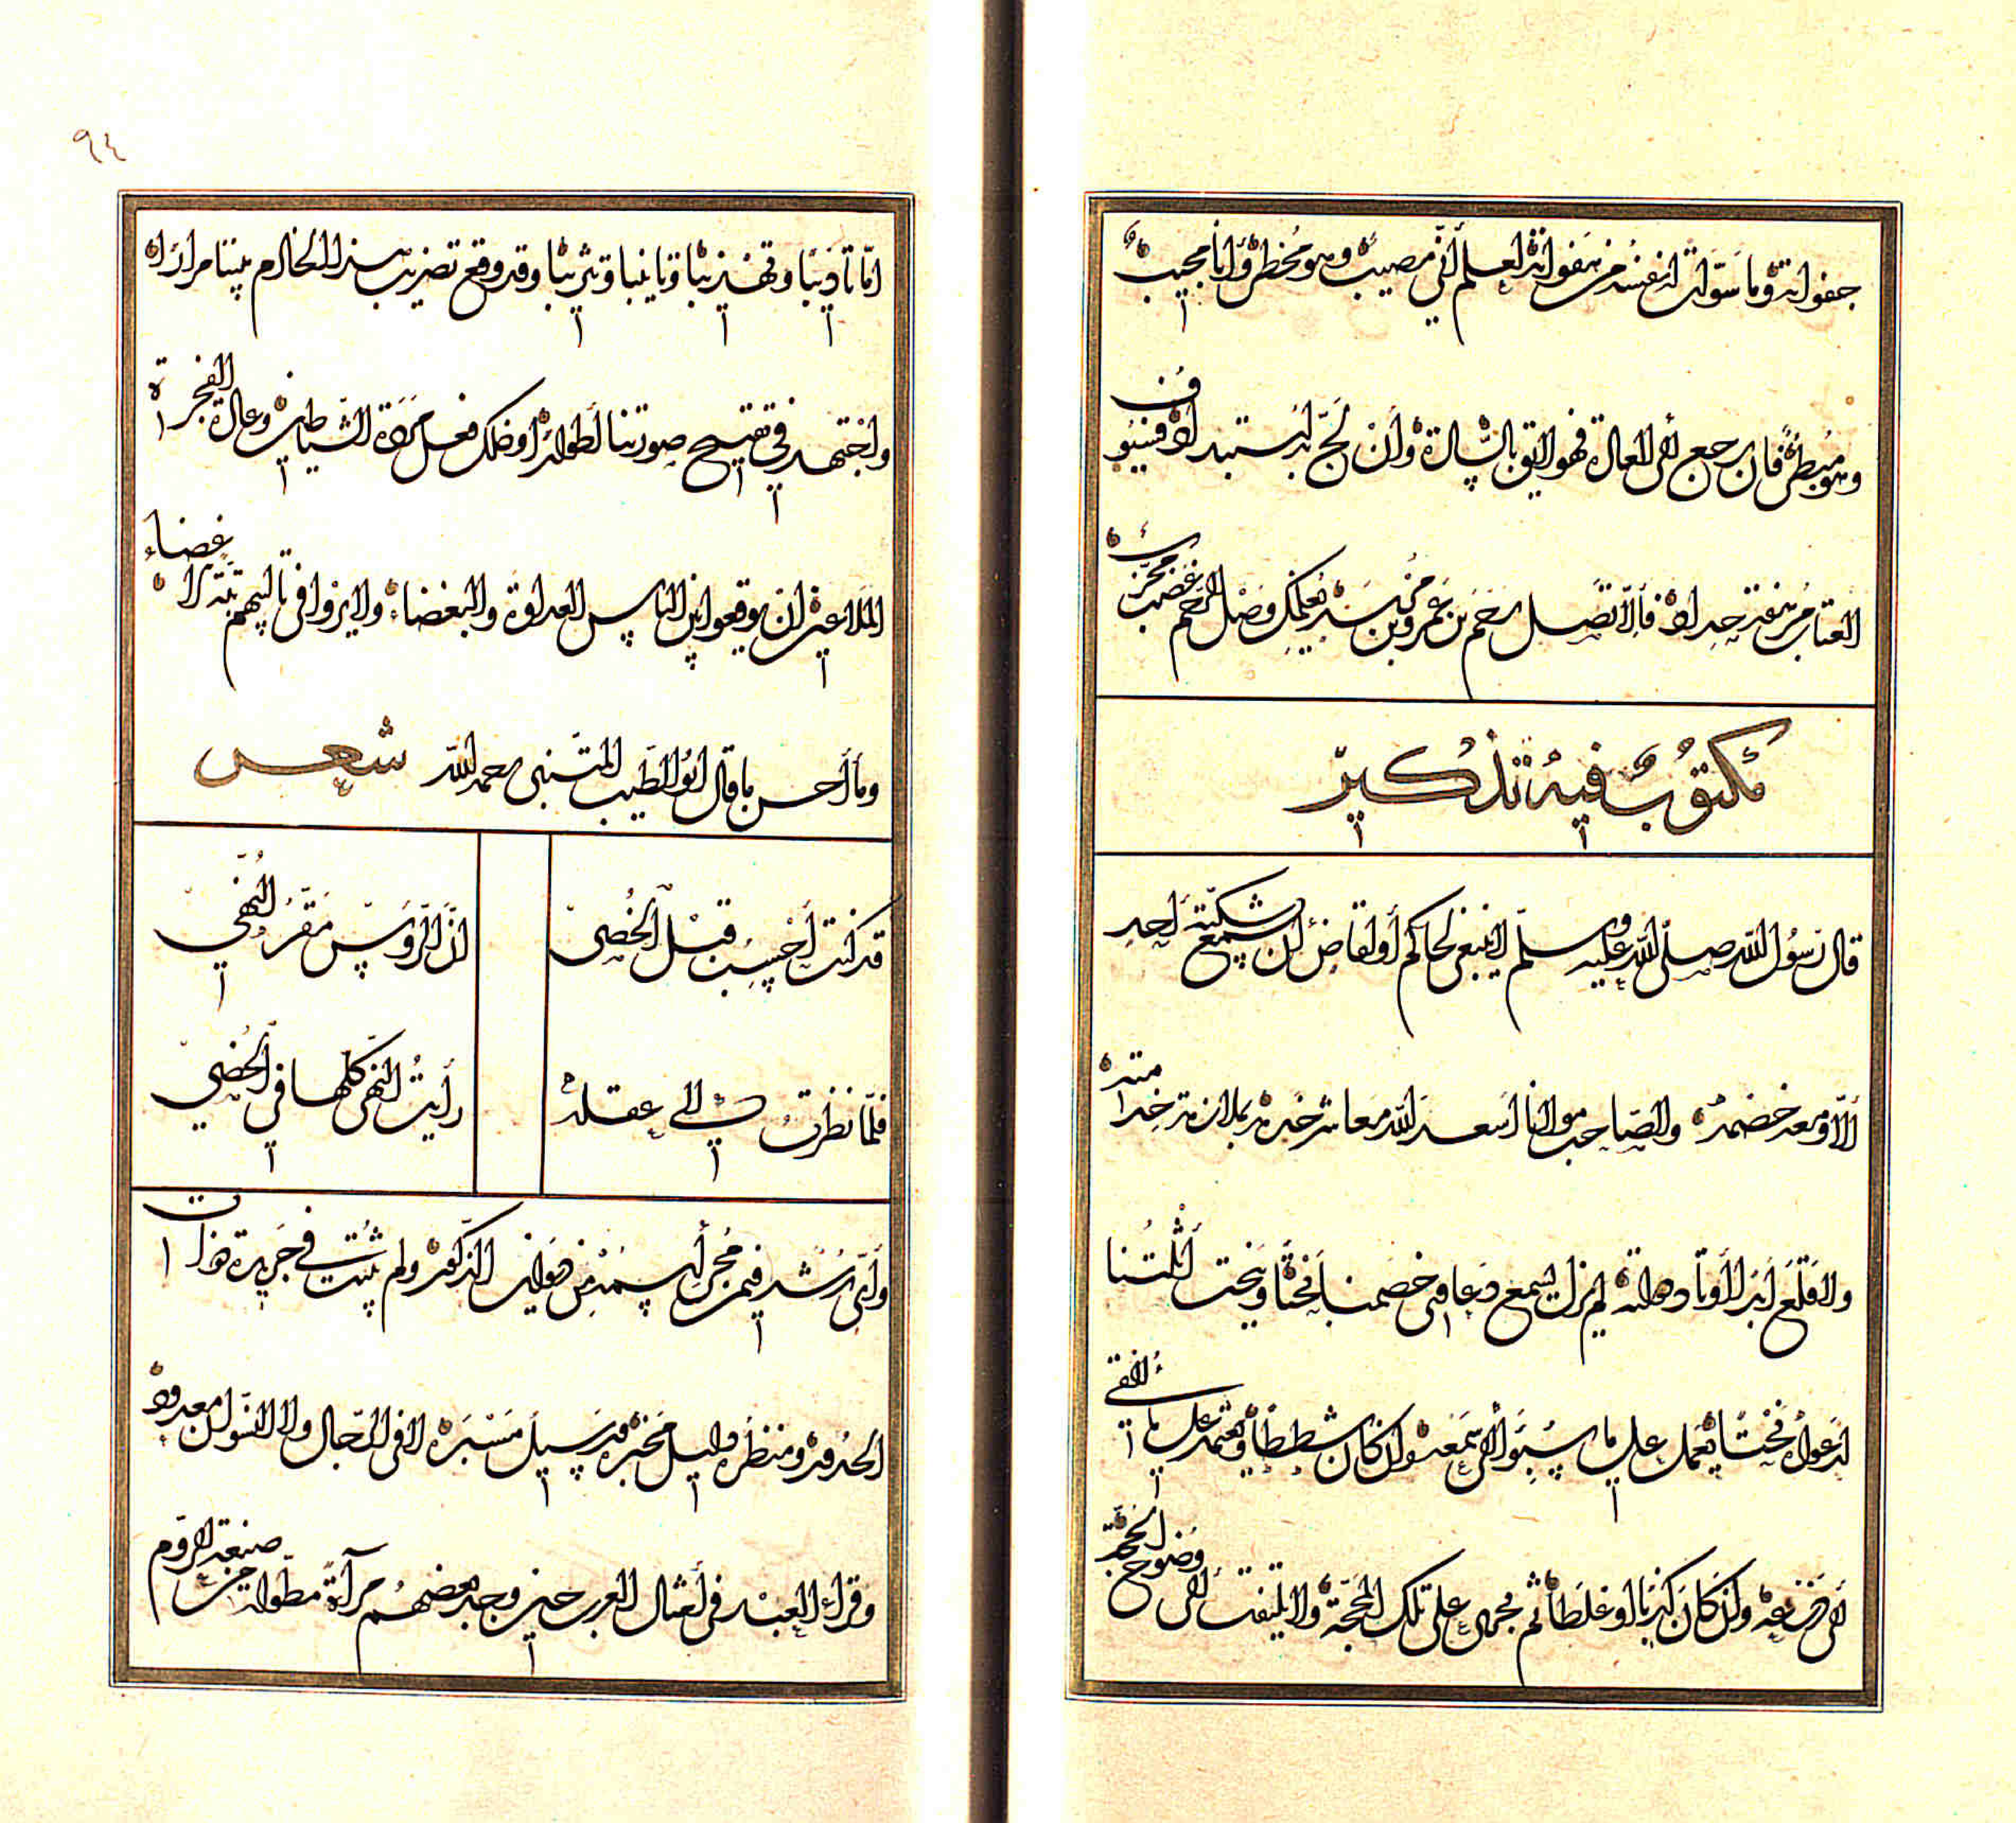 جفواته وما سوّلت له نفسه من هفواته ليعلم أنّي مصيب وهو مخطئ وأنا مجيب
وهو مبطئ فإن رجع إلى العدالة فهو أليق بالرسالة وأن لجّ به استبداده فسيوف
العتاب مرهفة حداد فإلّا تصل رحم بن عمرو بن مرثد يعلمك وصل الرحم غضب مجرّب
مكتوب فيه تذكير
قال رسول الله صلّى الله عليه وسلّم لا ينبغي لحاكم أو لقاض أن يسمع شكية أحد
إلّا ومعه خصمه والصاحب مولانا أسعد الله معاشر خدمه بدلازمة خدمته
ولا قلع أبدا أوتاد دولته لم يزل يسمع دعاوى خصمنا نحتا وينحت أثلتنا
لدعواه نحتا يعمل على ما سبق إلى سمعه وان كان شططا ويعتمد على ما ألقي
إلى سمعه وإن كان كذبا او غلطا ثم يجري على تلك المحجّة ولا يلتفت إلى وضوح الحجّة
٩٤
امّا تأديبا وتهذيبا وتأنيبا وتثريبا وقد وقع تضريب هذا الخادم بيننا مرارا
واجتهد في تقبيح صورتنا أطوارا وذلك فعل مردة الشياطين وعادة الفجرة
الملاعين ان يوقعوا بين الناس العداوة والبغضاء ولا يزوا في تأليبهم
وما أحسن ما قال ابو الطيب المتنبي رحمه الله شعر
قد كنت أحسب قبل الخصيّ انّ الرؤس مقرّ النهى
فلمّا نظرت الى عقله رأيت النهى كلّها في الخصى
وأيّ رشد فيمن مجرى اسمه من دواوين الذكور ولم يثبت في جريدة ذوات
الخدور ومنظره دليل مخبره وسبيل مسبره لا في الرجال ولا النسوان معدود
وقرأ العبد في أمثال العرب حين وجد بعضهم مرآة مطوّلة من صنعة الروم